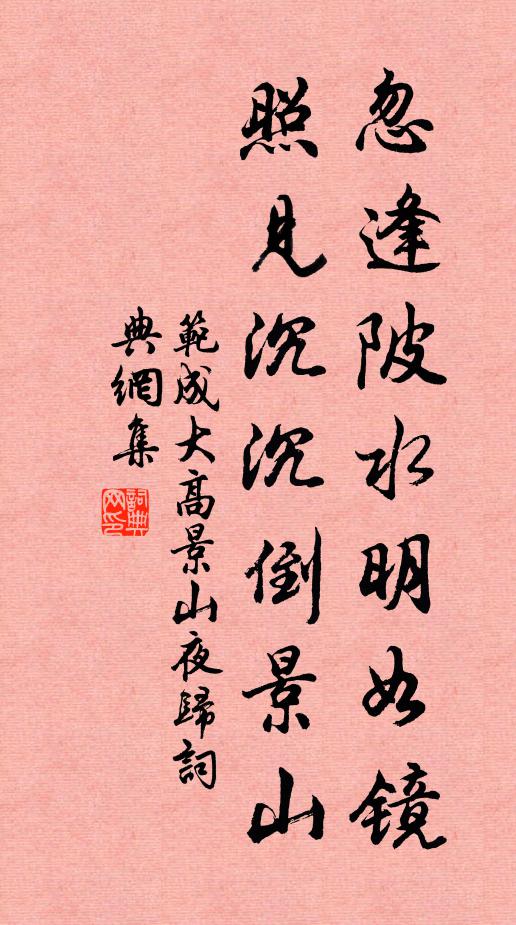 忽逢陂水明如镜
照见沉沉倒景山
範成大高景山夜歸詞
典網集
詞典网印